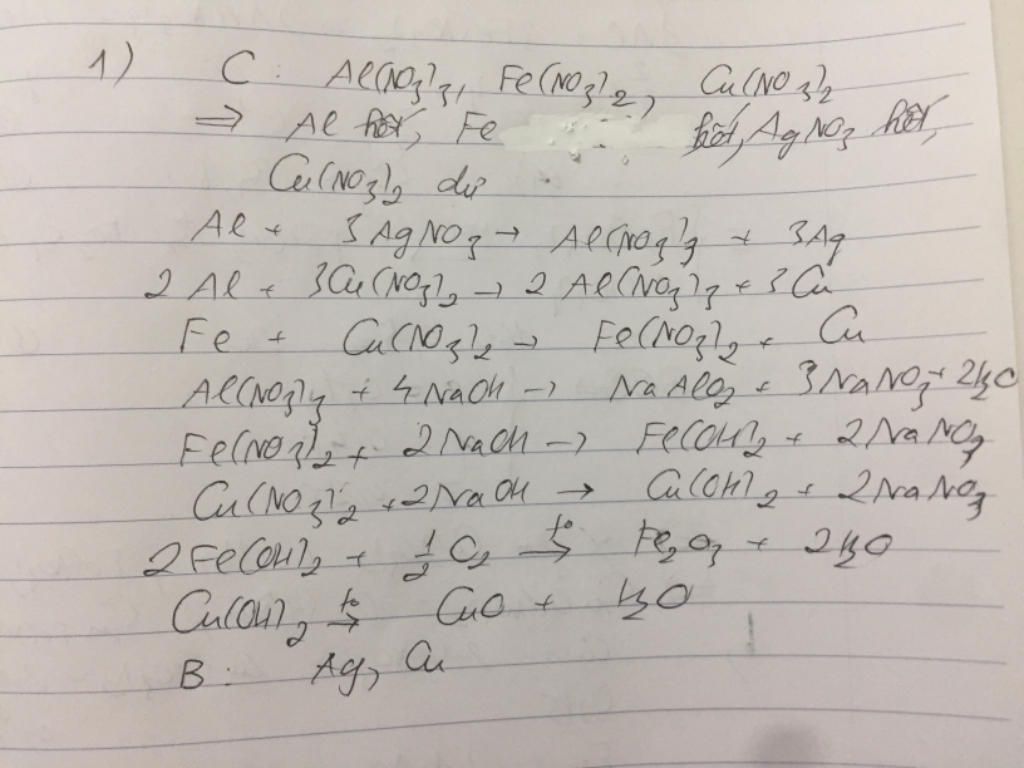 1) C : Al(NO3)3, Fe(NO3)2, Cu(NO3)2
⇒ Al hết, Fe hết, AgNO3 hết,
Cu(NO3)2 dư
Al + 3AgNO3 → Al(NO3)3 + 3Ag
2Al + 3Cu(NO3)2 → 2Al(NO3)3 + 3Cu
Fe + Cu(NO3)2 → Fe(NO3)2 + Cu
Al(NO3)3 + 4NaOH → NaAlO2 + 3NaNO3 + 2H2O
Fe(NO3)2 + 2NaOH → Fe(OH)2 + 2NaNO3
Cu(NO3)2 + 2NaOH → Cu(OH)2 + 2NaNO3
2Fe(OH)2 + 1/2 O2 t°→ Fe2O3 + 2H2O
Cu(OH)2 t°→ CuO + H2O
B : Ag, Cu